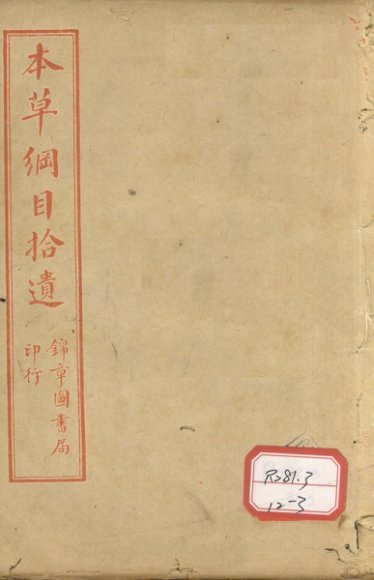 本草綱目拾遺
錦章圖書局
印行
R281.3
12-3